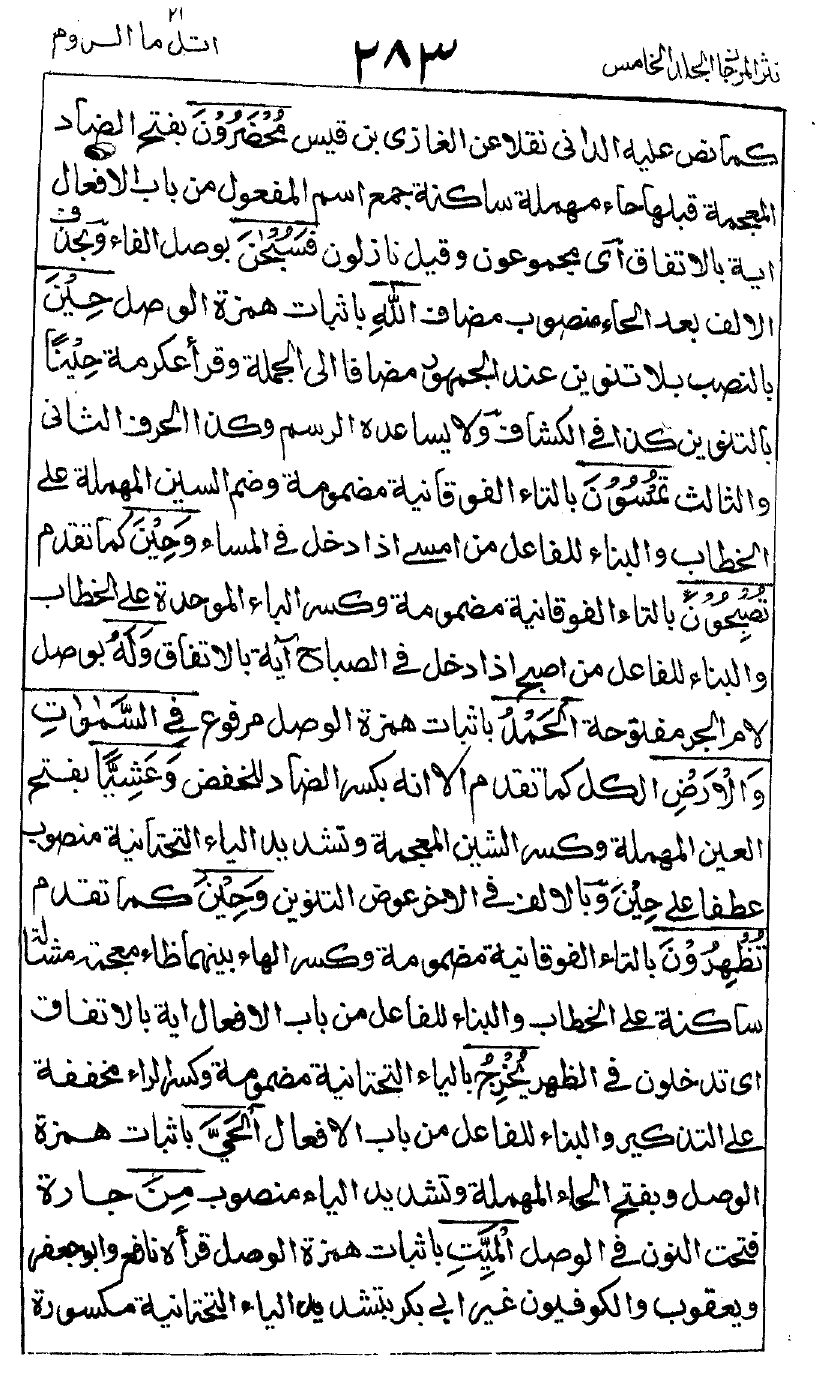 نثر المرجان المجلد الخامس ٢٨٣ اتل ما ٢١ الروم
كما نص عليه الدانى نقلا عن الغازى بن قيس مُحْضَرُوْنَ بفتح الضاد
المعجمة قبلها حاء مهملة ساكنة جمع اسم المفعول من باب الافعال
اية بالاتفاق اى مجموعون وقيل نازلون فَسُبْحٰنَ بوصل الفاء وبحذف
الالف بعد الحاء منصوب مضاف اللهِ باثبات همزة الوصل حِيْنَ
بالنصب بلا تنوين عند الجمهور مضافا الى الجملة وقرأ عكرمة حِيْنًا
بالتنوين كذا فى الكشاف ولا يساعده الرسم وكذا الحرف الثانى
والثالث تُمْسُوْنَ بالتاء الفوقانية مضمومة وضم السين المهملة على
الخطاب والبناء للفاعل من امسے اذا دخل فى المساء وَحِيْنَ كما تقدم
تُصْبِحُوْنَ بالتاء الفوقانية مضمومة وكسر الباء الموحدة على الخطاب
والبناء للفاعل من اصبح اذا دخل فى الصباح آية بالاتفاق وَلَهُ بوصل
لام الجر مفتوحة الْحَمْدُ باثبات همزة الوصل مرفوع فِي السَّمٰوٰتِ
وَالْاَرْضِ الكل كما تقدم الا انه بكسر الضاد للخفض وَعَشِيًّا بفتح
العين المهملة وكسر الشين المعجمة وتشديد الياء التحتانية منصوب
عطفا على حِيْنَ وبالالف فى الاخر عوض التنوين وَحِيْنَ كما تقدم
تُظْهِرُوْنَ بالتاء الفوقانية مضمومة وكسر الهاء بينهما ظاء معجمة مشالة
ساكنة على الخطاب والبناء للفاعل من باب الافعال اية بالاتفاق
اى تدخلون فى الظهر يُخْرِجُ بالياء التحتانية مضمومة وكسر الراء مخففة
على التذكير والبناء للفاعل من باب الافعال الْحَيَّ باثبات همزة
الوصل وبفتح الحاء المهملة وتشديد الياء منصوب مِنَ جارة
فتحت النون فى الوصل الْمَيِّتِ باثبات همزة الوصل قرأه نافع وابو جعفر
ويعقوب والكوفيون غير ابى بكر بتشديد الياء التحتانية مكسورة